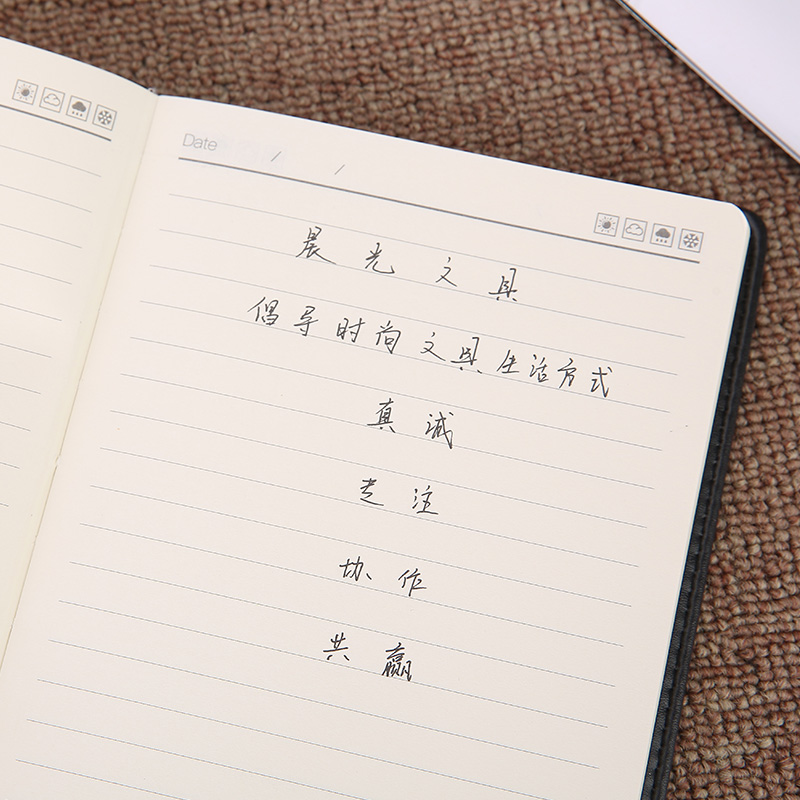 Date / /
晨光文具
倡导时尚文具生活方式
真诚
专注
协作
共赢